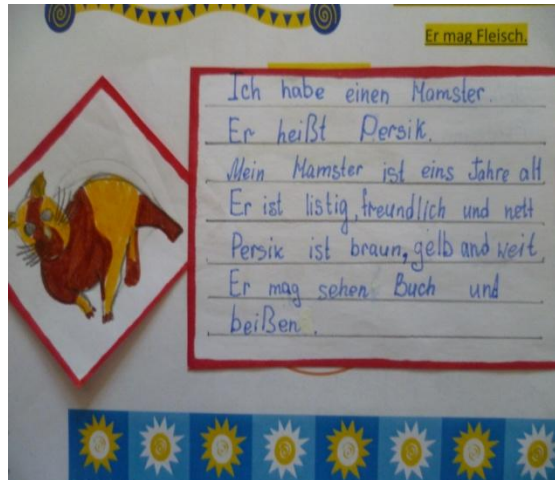 Er mag Fleisch.
Ich habe einen Mamster.
Er heißt Persik.
Mein Mamster ist eins Jahre alt
Er ist listig, freundlich und nett
Persik ist braun, gelb and weit.
Er mag sehen Buch und
beißen.